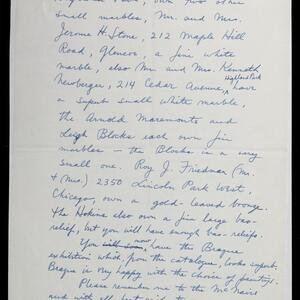 small marbles, Mr. and Mrs.
Jerome H. Stone, 212 Maple Hill
Road, Glencoe, a fine white
marble, also Mr. and Mrs. Kenneth
Newberger, 214 Cedar Avenue, Highland Park have
a superb small white marble,
the Arnold Maremonts and
Leigh Blocks each own fine
marbles — the Blocks is a very
small one. Roy J. Friedman (Mr.
& Mrs.) 2350 Lincoln Park West,
Chicago, own a gold-leaved bronze.
The Hokins also own a fine large bas-
relief, but you will have enough bas-reliefs.
You now have the Braque
exhibition which, from the catalogue, looks superb.
Braque is very happy with the choice of paintings.
Please remember me to the McNairs
and with all best wishes to